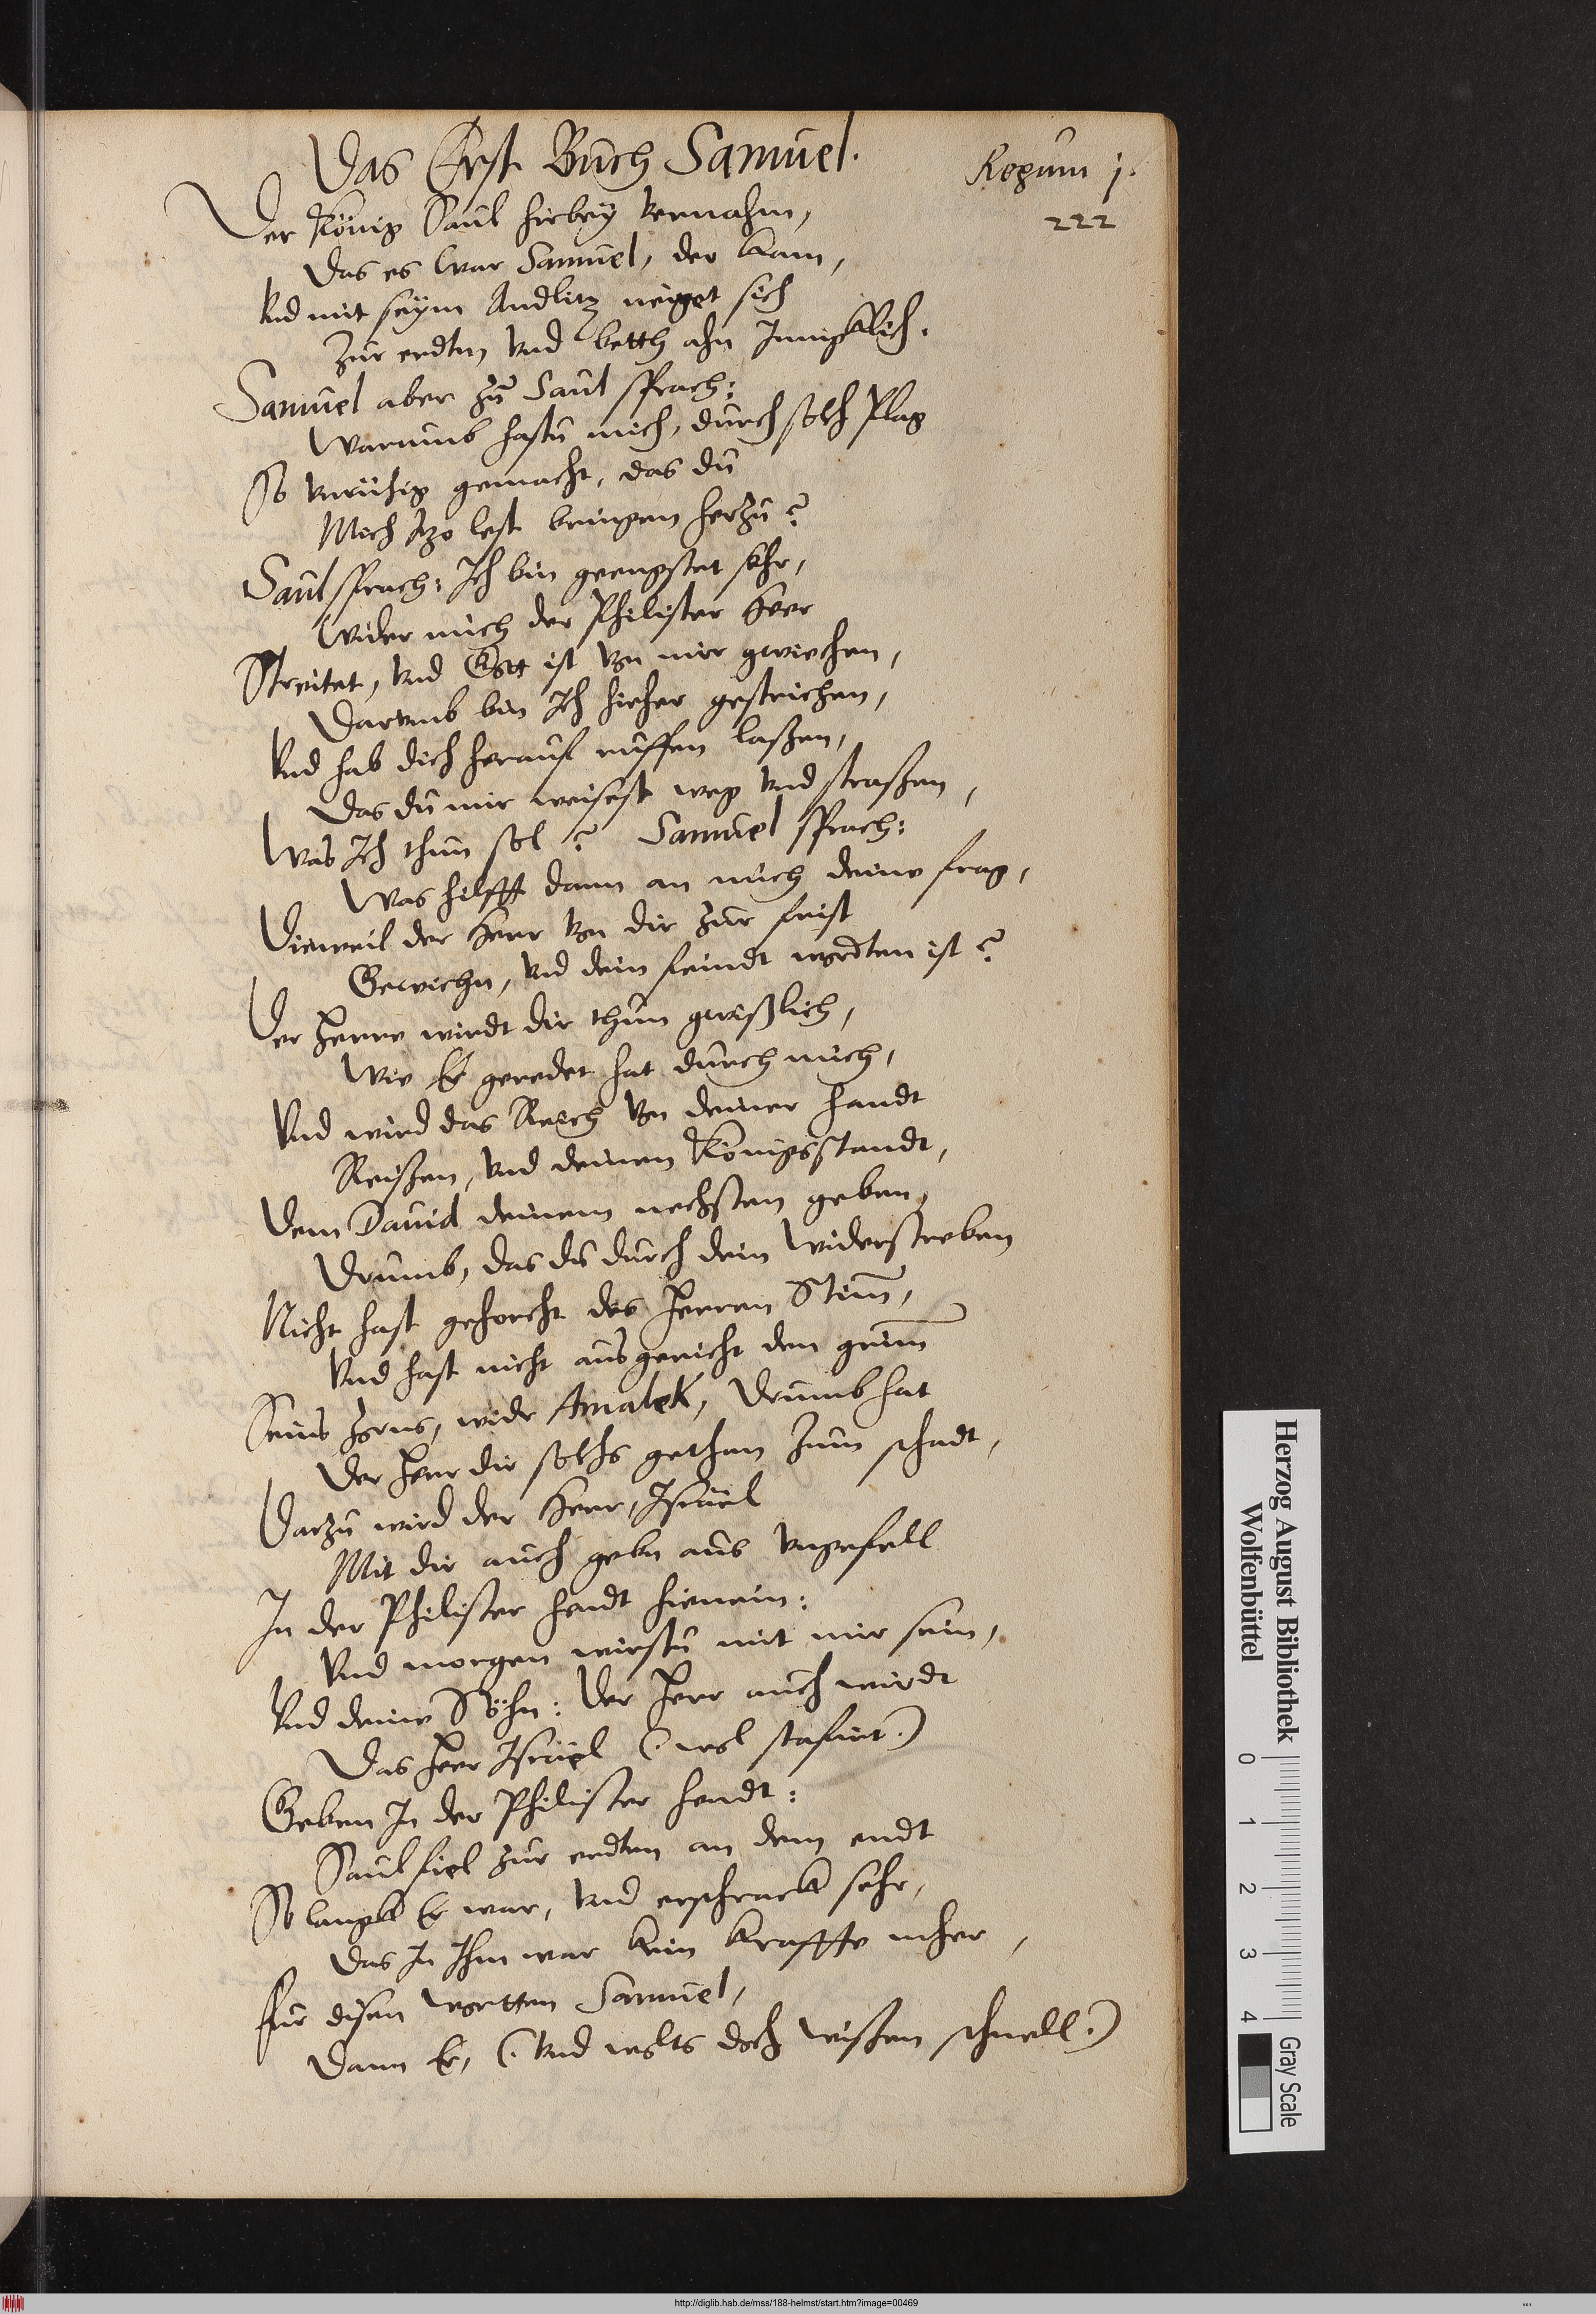 Das Erst Buch Samuel.
Regum j.
222
Der König Saul hirbey vernahm,
Das es war Samuel, der kam,
Vnd mit seym Andlitz neiget sich
Zur erdten vnd betth ahn Innigklich.
Samuel aber zu Saul sprach:
Warumb hastu mich, durch solch Plag
So vnrühig gemacht, das du
Mich Itzo lest bringen herzu?
Saul sprach: Ich bin geengstet sehr,
Wider mich der Philister heer
Streitet, vnd Gott ist von mir gwichen,
Darumb bin Ich hieher gestrichen,
Vnd hab dich herauf ruffen laßen,
Das du mir weisest weg vnd straßen,
Was Ich thun sol? Samuel sprach:
Was hilfft dann an mich deine frag,
Dieweil der Herr von dir zur frist
Gewichn, vnd dein feindt wordten ist?
Der Herre wirdt dir thun gwißlich,
Wie Er geredet hat durch mich,
Vnd wird das Reich von deiner handt
Reißen, vnd deinen Königsstandt,
Dem Dauid deinem nechsten geben,
Drumb, das du durch dein widerstreben
Nicht hast gehorcht des Herren Stim̄,
Vnd hast nicht ausgericht den grim̄
Seins Zorns, widr Amalek, Drumb hat
Der Herr dir solchs gethan zum schadt,
Darzu wird der Herr, Israel
Mit dir auch gebn aus vngefell
In der Philister hendt hienein:
Vnd morgen wirstu mit mir sein,
Vnd deine Söhn: Der Herr auch wirdt
Das Heer Israel (: wol stafirt :)
Geben In der Philister hendt:
Saul fiel zur erdten an dem endt
So langk Er war, vnd erschrack sehr,
Das In Ihm war kein kraffte mher,
Fur disen wortten Samuel,
Dann Er, (: vnd wolts doch wißen schnell :)
Herzog August Bibliothek
Wolfenbüttel
0 1 2 3 4
Gray Scale
http://diglib.hab.de/mss/188-helmst/start.htm?image=00469